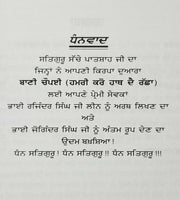 ਧੰਨਵਾਦ
ਸਤਿਗੁਰੂ ਸੱਚੇ ਪਾਤਸ਼ਾਹ ਜੀ ਦਾ
ਜਿਨ੍ਹਾਂ ਨੇ ਆਪਣੀ ਕਿਰਪਾ ਦੁਆਰਾ
ਬਾਣੀ ਚੌਪਈ (ਹਮਰੀ ਕਰੋ ਹਾਥ ਦੈ ਰੱਛਾ)
ਲਈ ਆਪਣੇ ਪ੍ਰੇਮੀ ਸੇਵਕਾਂ
ਭਾਈ ਰਜਿੰਦਰ ਸਿੰਘ ਜੀ ਲੀਨ ਨੂੰ ਅਰਥ ਲਿਖਣ ਦਾ
ਅਤੇ
ਭਾਈ ਜੋਗਿੰਦਰ ਸਿੰਘ ਜੀ ਨੂੰ ਅੰਤਮ ਰੂਪ ਦੇਣ ਦਾ
ਉਦਮ ਬਖ਼ਸ਼ਿਆ !
ਧੰਨ ਸਤਿਗੁਰੂ ! ਧੰਨ ਸਤਿਗੁਰੂ !! ਧੰਨ ਸਤਿਗੁਰੂ !!!